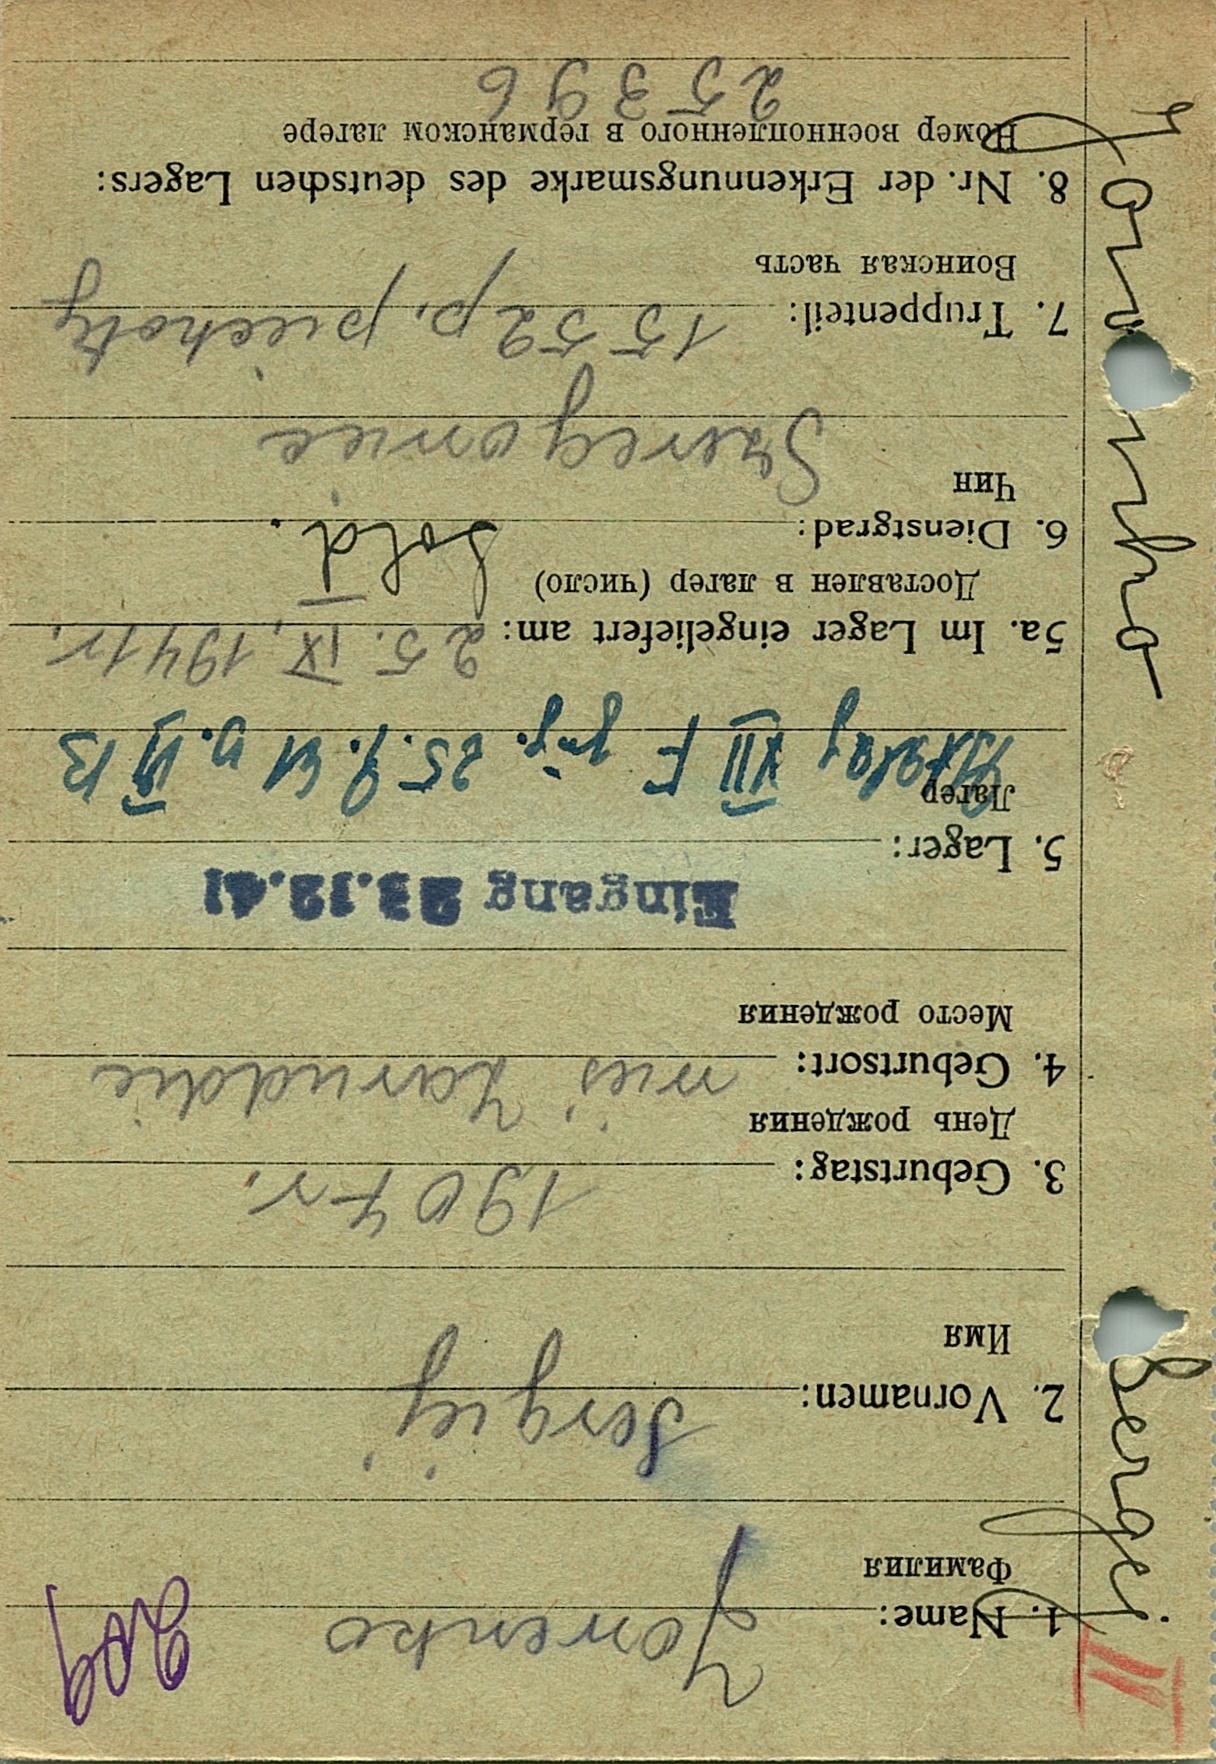 II
209
1. Name: Jowenko
Фамилия
2. Vornamen: Sergiej
Имя
3. Geburtstag: 1907 r.
День рождения
4. Geburtsort: Zaruddie
Место рождения
Eingang 23.12.41
5. Lager:
Лагер
XII F 25.9.41 v. VI B
5a. Im Lager eingeliefert am: 25. IX. 1941 r.
Доставлен в лагер (число)
6. Dienstgrad: Sold.
Чин
Szeregowiec
7. Truppenteil: 1552 p. piechoty
Воинская часть
8. Nr. der Erkennungsmarke des deutschen Lagers:
Номер военнопленного в германском лагере
25396
Sergej